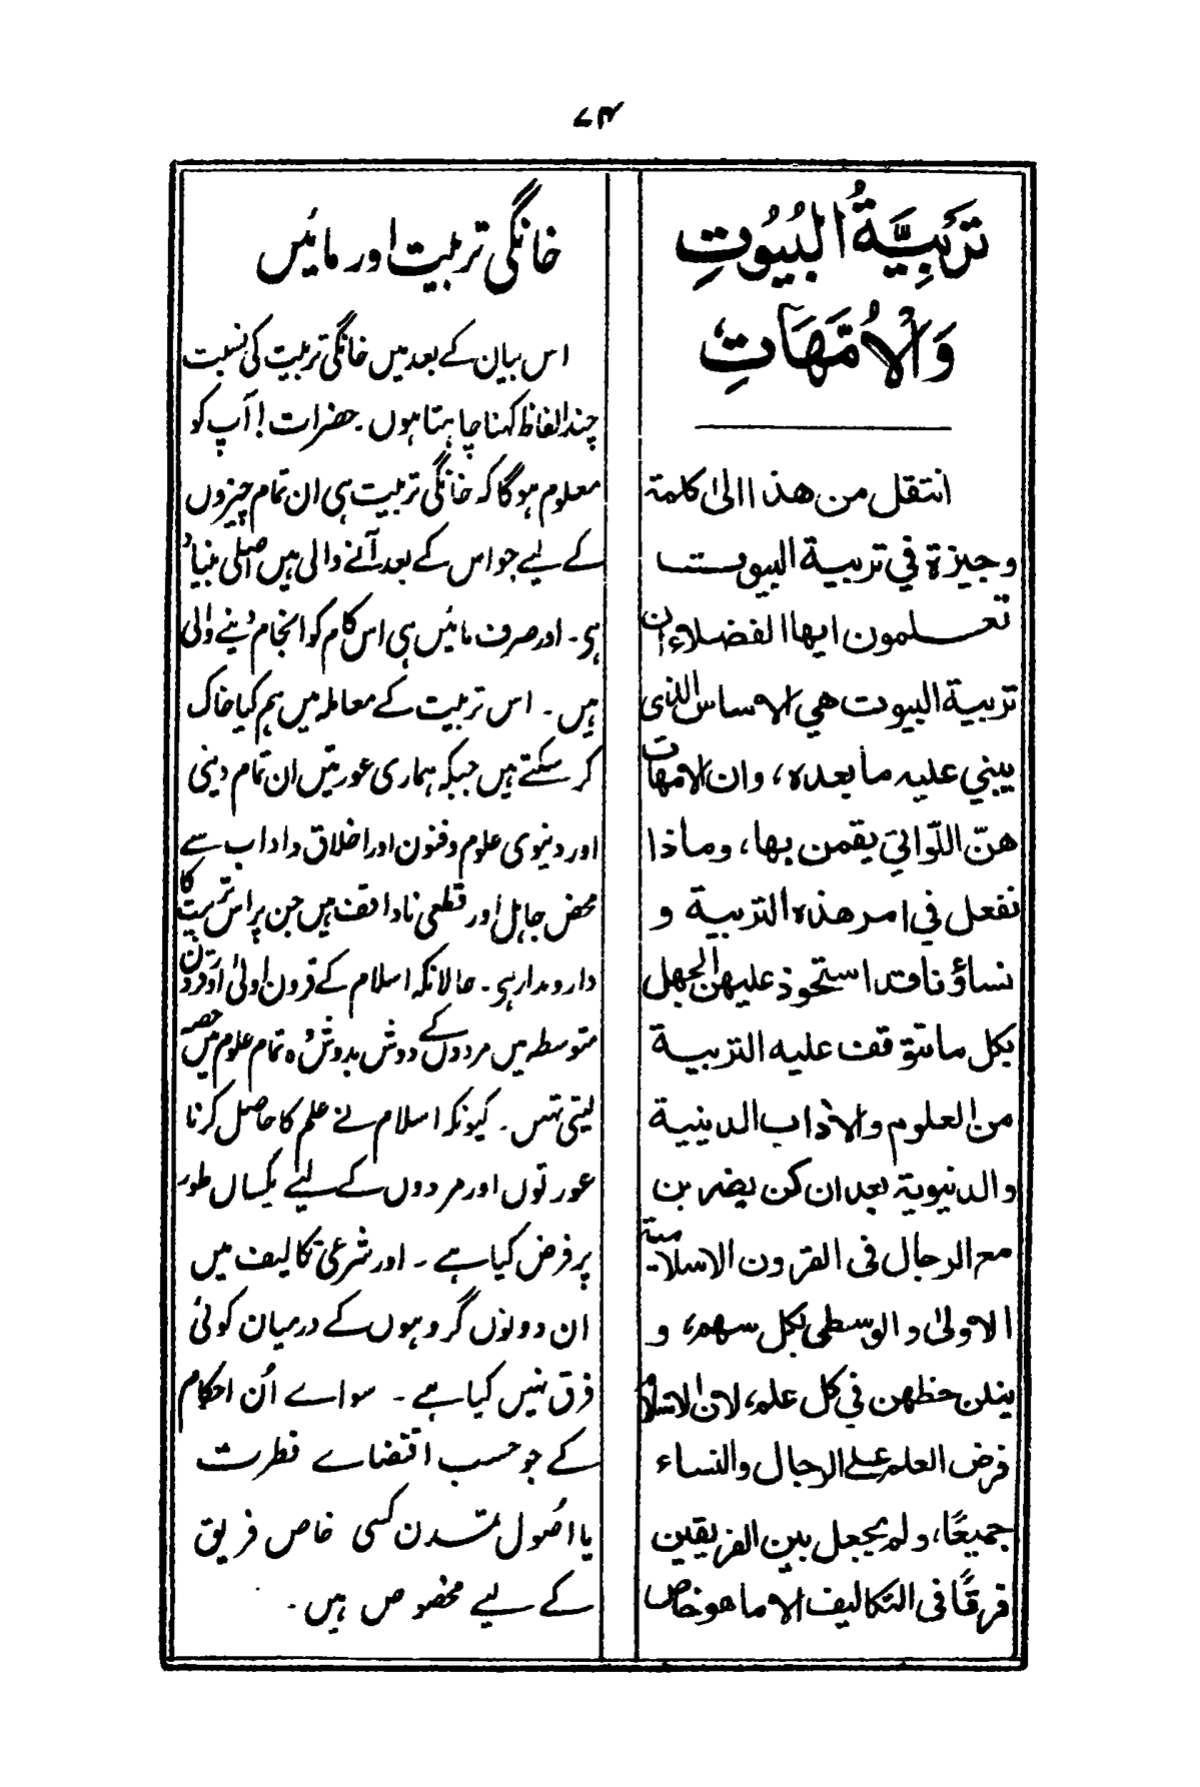 ۷۴
تَرْبِيَّةُ الْبُيُوتِ
وَالْاُمَّهَاتِ
انتقل من هذا الىٰ كلمة
وجيزة في تربية البيوت
تعلمون ايها الفضلاء ان
تربية البيوت هي الاساس الذى
يبنى عليه ما بعده، وان الامهات
هنّ اللّواتي يقمن بها، وماذا
نفعل في امر هذه التربية و
نساؤنا قد استحوذ عليهن الجهل
بكل ما تتوقف عليه التربية
من العلوم والاٰداب الدينية
والدنيوية بعد ان كن يضربن
مع الرجال فى القرون الاسلامية
الاولىٰ والوسطى بكل سهم، و
ينلن حظهن في كل علم، لان الاسلام
فرض العلم على الرجال والنساء
جميعًا، ولم يجعل بين الفريقين
فرقًا فى التكاليف الا ما هو خاص
خانگی تربیت اور مائیں
اس بیان کے بعد میں خانگی تربیت کی نسبت
چند الفاظ کہنا چاہتا ہوں۔ حضرات! آپ کو
معلوم ہوگا کہ خانگی تربیت ہی ان تمام چیزوں
کے لیے جو اس کے بعد آنے والی ہیں اصلی بنیاد
ہی۔ اور صرف مائیں ہی اس کام کو انجام دینے والی
ہیں۔ اس تربیت کے معاملہ میں ہم کیا خاک
کر سکتے ہیں جبکہ ہماری عورتیں ان تمام دینی
اور دنیوی علوم و فنون اور اخلاق و اداب سے
محض جاہل اور قطعی ناواقف ہیں جن پر اس تربیت کا
دارومدار ہی۔ حالانکہ اسلام کے قرون اولیٰ اور قرون
متوسطہ میں مردوں کے دوش بدوش وہ تمام علوم میں حصہ
لیتی تہیں۔ کیونکہ اسلام نے علم کا حاصل کرنا
عورتوں اور مردوں کے لیے یکساں طور
پر فرض کیا ہے۔ اور شرعی تکالیف میں
ان دونوں گروہوں کے درمیان کوئی
فرق نہیں کیا ہے۔ سواے اُن احکام
کے جو حسب اقتضاے فطرت
یا اصُول تمدن کسی خاص فریق
کے لیے مخصوص ہیں۔